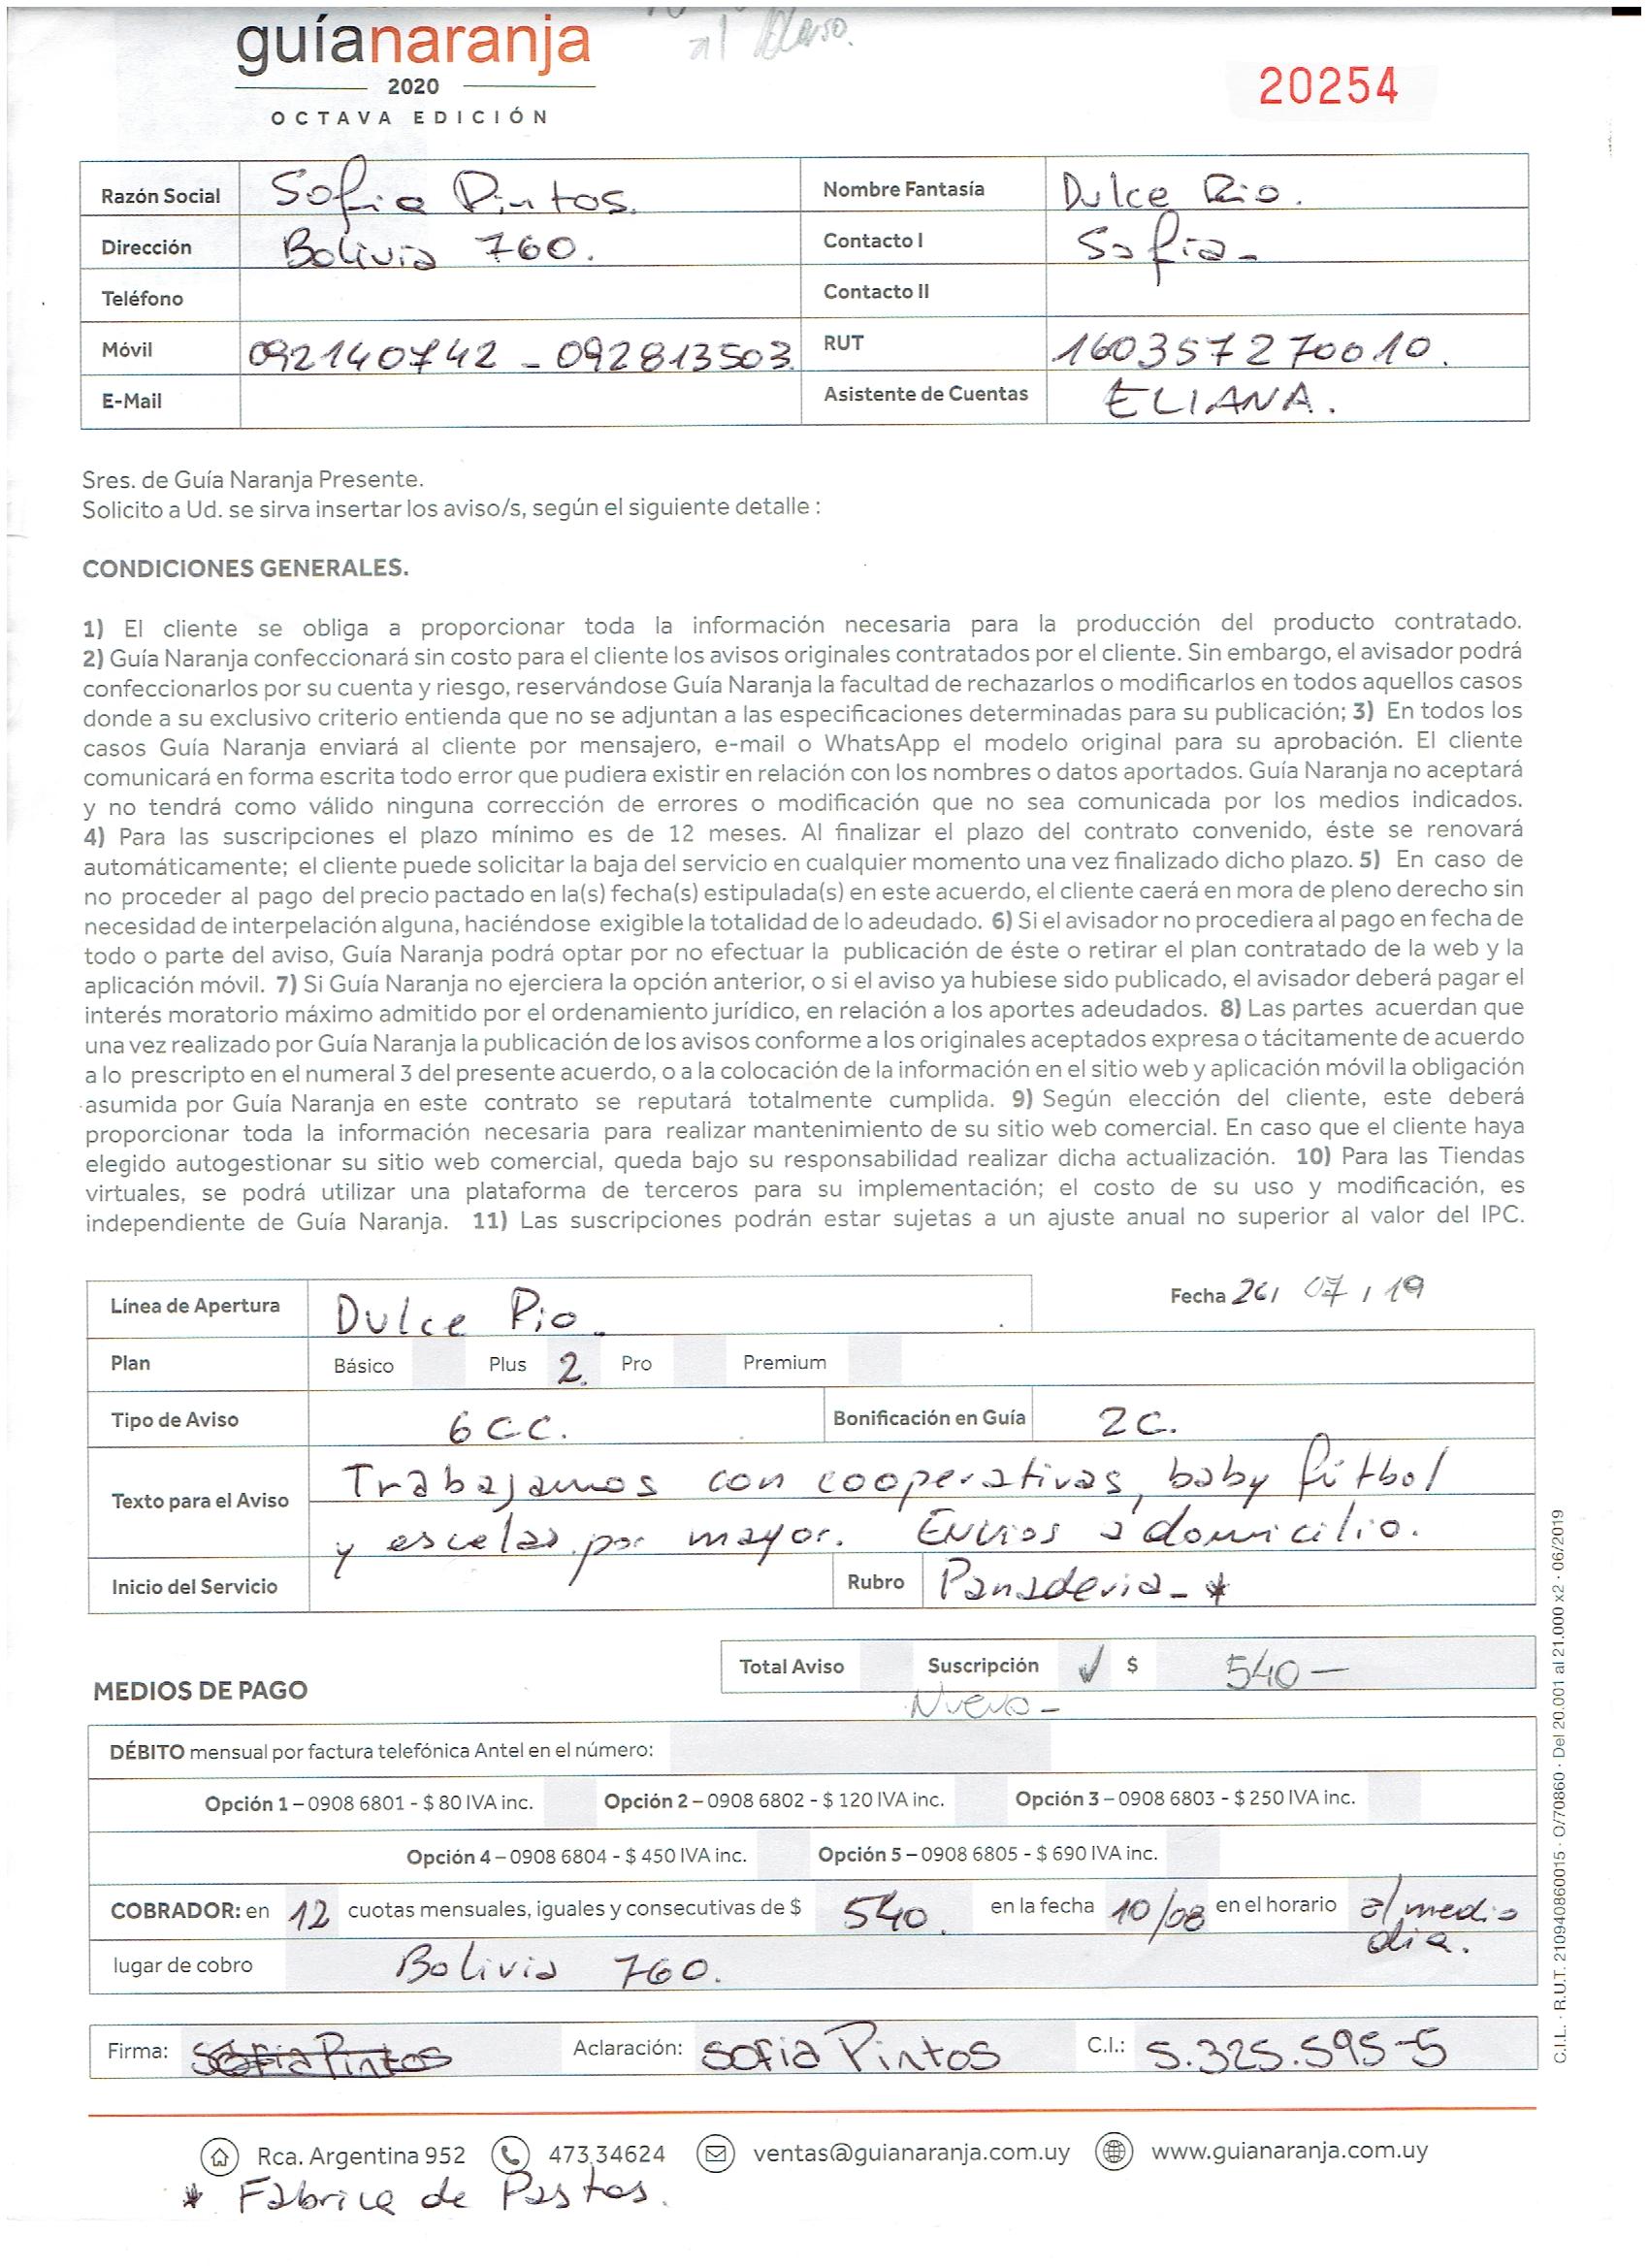 al
guíanaranja
2020
OCTAVA EDICIÓN
20254
Razón Social Sofia Pintos. Nombre Fantasía Dulce Rio.
Dirección Bolivia 760. Contacto I Sofia-
Teléfono Contacto II
Móvil 092140742 - 092813503 RUT 160357270010.
E-Mail Asistente de Cuentas ELIANA.
Sres. de Guía Naranja Presente.
Solicito a Ud. se sirva insertar los aviso/s, según el siguiente detalle :
CONDICIONES GENERALES.
1) El cliente se obliga a proporcionar toda la información necesaria para la producción del producto contratado.
2) Guía Naranja confeccionará sin costo para el cliente los avisos originales contratados por el cliente. Sin embargo, el avisador podrá
confeccionarlos por su cuenta y riesgo, reservándose Guía Naranja la facultad de rechazarlos o modificarlos en todos aquellos casos
donde a su exclusivo criterio entienda que no se adjuntan a las especificaciones determinadas para su publicación; 3) En todos los
casos Guía Naranja enviará al cliente por mensajero, e-mail o WhatsApp el modelo original para su aprobación. El cliente
comunicará en forma escrita todo error que pudiera existir en relación con los nombres o datos aportados. Guía Naranja no aceptará
y no tendrá como válido ninguna corrección de errores o modificación que no sea comunicada por los medios indicados.
4) Para las suscripciones el plazo mínimo es de 12 meses. Al finalizar el plazo del contrato convenido, éste se renovará
automáticamente; el cliente puede solicitar la baja del servicio en cualquier momento una vez finalizado dicho plazo. 5) En caso de
no proceder al pago del precio pactado en la(s) fecha(s) estipulada(s) en este acuerdo, el cliente caerá en mora de pleno derecho sin
necesidad de interpelación alguna, haciéndose exigible la totalidad de lo adeudado. 6) Si el avisador no procediera al pago en fecha de
todo o parte del aviso, Guía Naranja podrá optar por no efectuar la publicación de éste o retirar el plan contratado de la web y la
aplicación móvil. 7) Si Guía Naranja no ejerciera la opción anterior, o si el aviso ya hubiese sido publicado, el avisador deberá pagar el
interés moratorio máximo admitido por el ordenamiento jurídico, en relación a los aportes adeudados. 8) Las partes acuerdan que
una vez realizado por Guía Naranja la publicación de los avisos conforme a los originales aceptados expresa o tácitamente de acuerdo
a lo prescripto en el numeral 3 del presente acuerdo, o a la colocación de la información en el sitio web y aplicación móvil la obligación
asumida por Guía Naranja en este contrato se reputará totalmente cumplida. 9) Según elección del cliente, este deberá
proporcionar toda la información necesaria para realizar mantenimiento de su sitio web comercial. En caso que el cliente haya
elegido autogestionar su sitio web comercial, queda bajo su responsabilidad realizar dicha actualización. 10) Para las Tiendas
virtuales, se podrá utilizar una plataforma de terceros para su implementación; el costo de su uso y modificación, es
independiente de Guía Naranja. 11) Las suscripciones podrán estar sujetas a un ajuste anual no superior al valor del IPC.
Línea de Apertura Dulce Rio. Fecha 26/ 07 / 19
Plan Básico Plus 2. Pro Premium
Tipo de Aviso 6CC. Bonificación en Guía 2C.
Texto para el Aviso Trabajamos con cooperativas, baby fútbol
y escelas por mayor. Envios a domicilio.
Inicio del Servicio Rubro Panaderia-*
Total Aviso Suscripción ✓ $ 540-
MEDIOS DE PAGO
Nuevo-
DÉBITO mensual por factura telefónica Antel en el número:
Opción 1 – 0908 6801 - $ 80 IVA inc. Opción 2 – 0908 6802 - $ 120 IVA inc. Opción 3 – 0908 6803 - $ 250 IVA inc.
Opción 4 – 0908 6804 - $ 450 IVA inc. Opción 5 – 0908 6805 - $ 690 IVA inc.
COBRADOR: en 12 cuotas mensuales, iguales y consecutivas de $ 540. en la fecha 10/08 en el horario a/ medio
dia.
lugar de cobro Bolivia 760.
Firma: Sofia Pintos Aclaración: Sofia Pintos C.I.: 5.325.595-5
Rca. Argentina 952 473 34624 ventas@guianaranja.com.uy www.guianaranja.com.uy
* Fabrica de Pastas.
C.I.L. · R.U.T. 210940860015 · O/70860 · Del 20.001 al 21.000 x2 · 06/2019